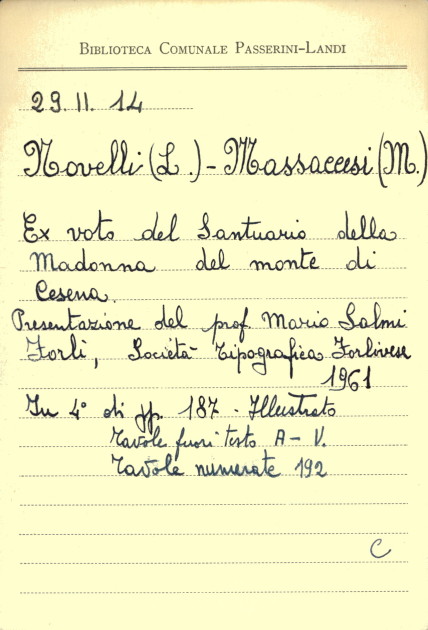 BIBLIOTECA COMUNALE PASSERINI-LANDI
29.II.14
Novelli (L.) - Massaccesi (M.)
Ex voto del Santuario della
Madonna del monte di
Cesena.
Presentazione del prof. Mario Salmi
Forlì, Società Tipografica Forlivese
1961
In 4° di pp. 187 - Illustrato
Tavole fuori testo A - V.
Tavole numerate 192
C